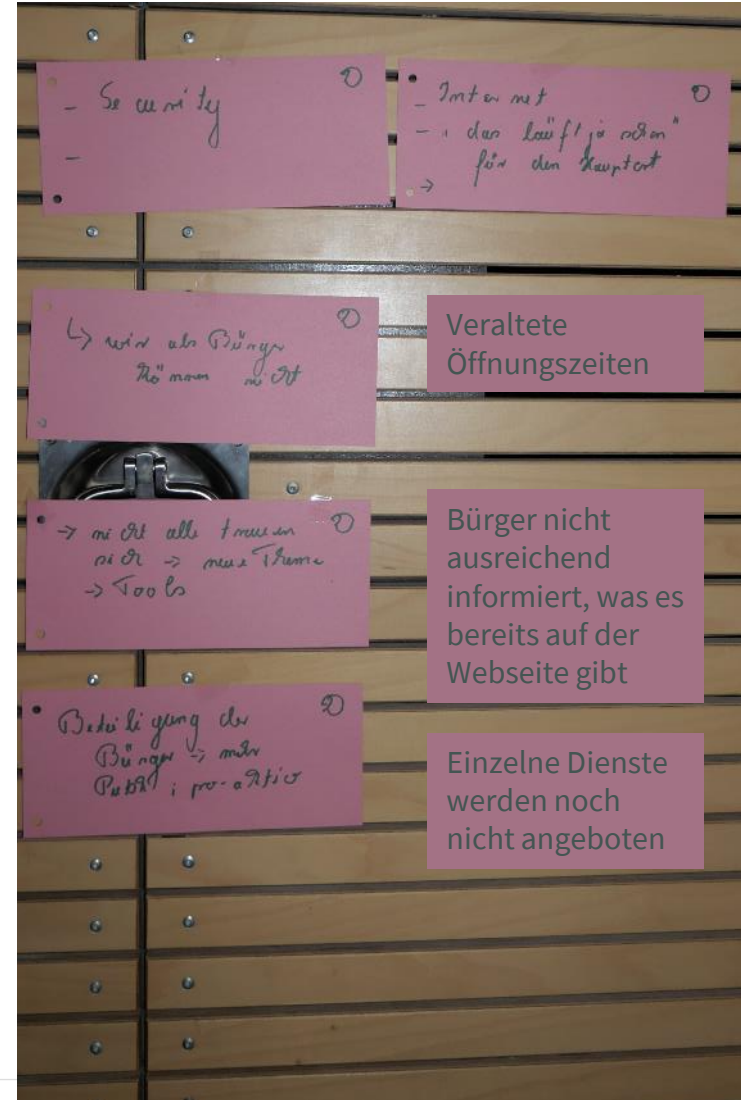 - Security
-
②
- Internet
- "das läuft ja schon"
für den Hauptort
→
②
↳ wir als Bürger
können nicht
②
Veraltete
Öffnungszeiten
→ nicht alle trauen
sich → neue Theme
→ Tools
②
Bürger nicht
ausreichend
informiert, was es
bereits auf der
Webseite gibt
Beteiligung der
Bürger → mehr
; pro-aktiv
②
Einzelne Dienste
werden noch
nicht angeboten